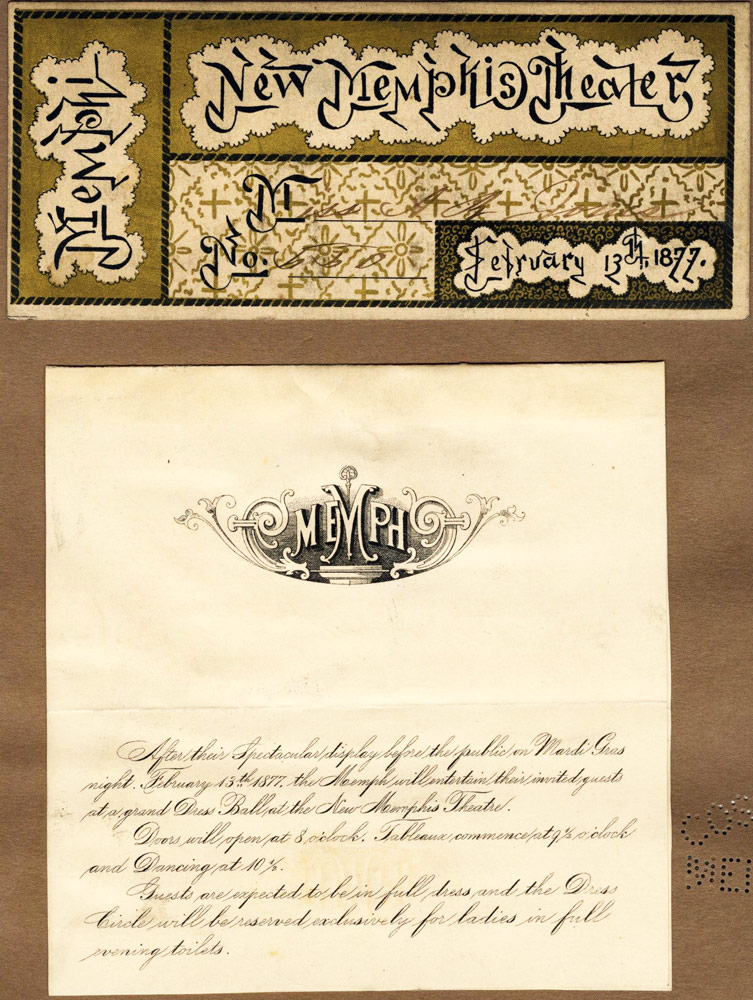 Memphi
New Memphis Theater
M
No.
February 13th, 1877.
MEMPH
After their Spectacular display before the public on Mardi Gras
night. February 13th 1877. the Memph will entertain their invited guests
at a grand Dress Ball at the New Memphis Theatre.
Doors will open at 8 o'clock. Tableaux commence at 9½ o'clock
and Dancing at 10½.
Guests are expected to be in full dress and the Dress
Circle will be reserved exclusively for ladies in full
evening toilets.